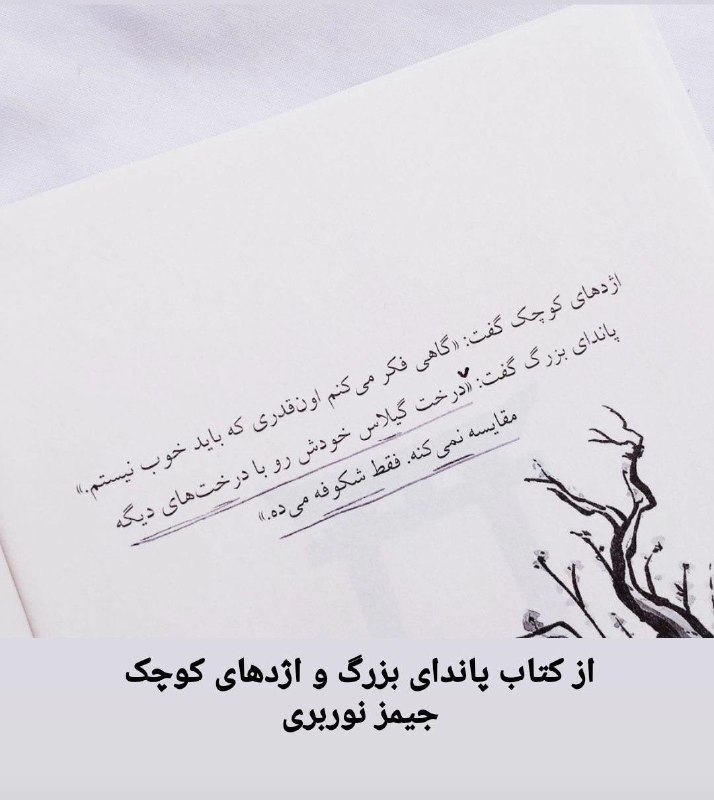 اژدهای کوچک گفت: «گاهی فکر می‌کنم اون‌قدری که باید خوب نیستم.»
پاندای بزرگ گفت: «درخت گیلاس خودش رو با درخت‌های دیگه
مقایسه نمی‌کنه. فقط شکوفه می‌ده.»
از کتاب پاندای بزرگ و اژدهای کوچک
جیمز نوربری